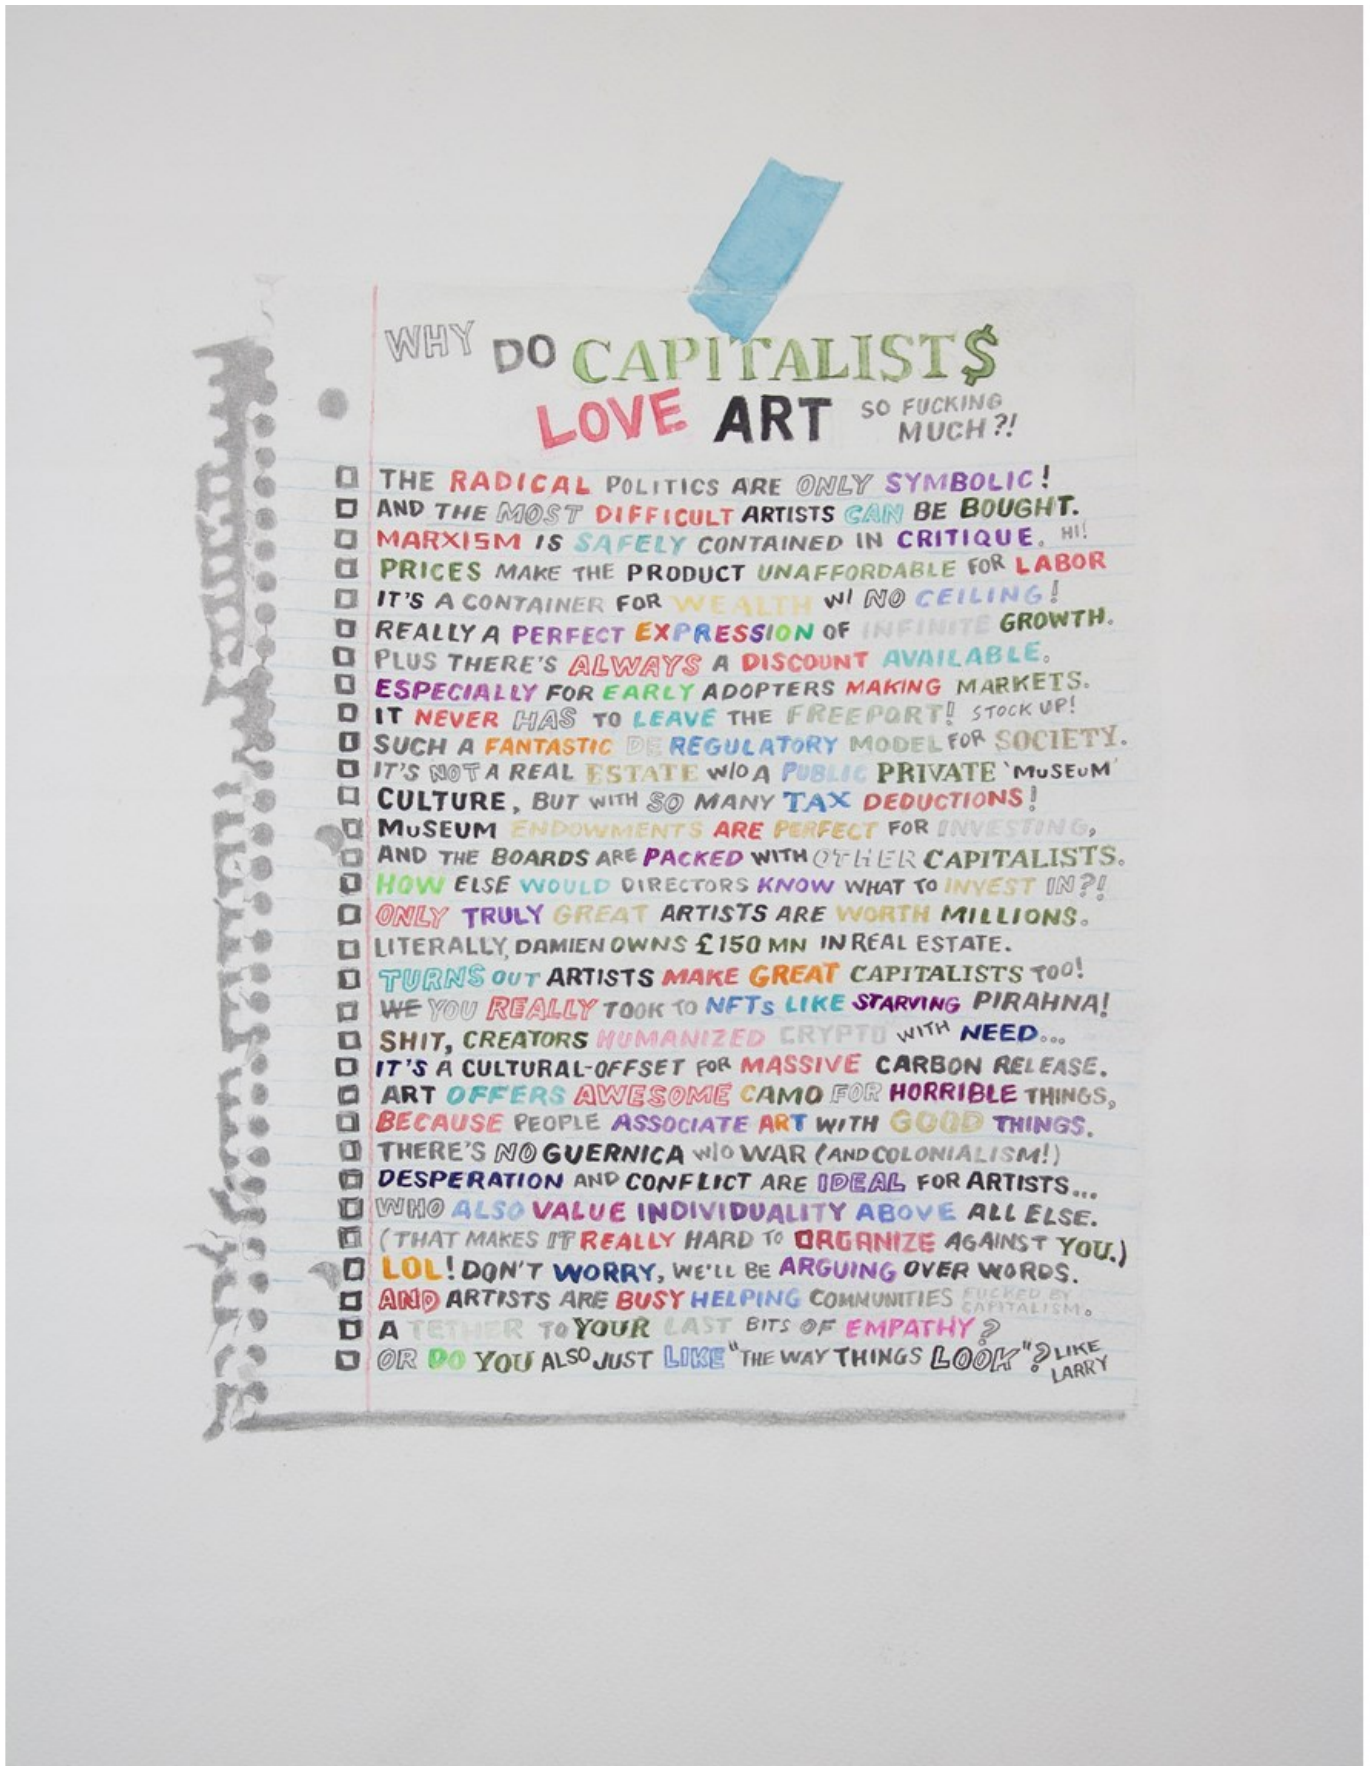 WHY DO CAPITALIST$
LOVE ART SO FUCKING
MUCH?!
THE RADICAL POLITICS ARE ONLY SYMBOLIC!
AND THE MOST DIFFICULT ARTISTS CAN BE BOUGHT.
MARXISM IS SAFELY CONTAINED IN CRITIQUE. HI!
PRICES MAKE THE PRODUCT UNAFFORDABLE FOR LABOR
IT'S A CONTAINER FOR WEALTH W/ NO CEILING!
REALLY A PERFECT EXPRESSION OF INFINITE GROWTH.
PLUS THERE'S ALWAYS A DISCOUNT AVAILABLE.
ESPECIALLY FOR EARLY ADOPTERS MAKING MARKETS.
IT NEVER HAS TO LEAVE THE FREEPORT! STOCK UP!
SUCH A FANTASTIC DE REGULATORY MODEL FOR SOCIETY.
IT'S NOT A REAL ESTATE W/O A PUBLIC PRIVATE 'MUSEUM'
CULTURE, BUT WITH SO MANY TAX DEDUCTIONS!
MUSEUM ENDOWMENTS ARE PERFECT FOR INVESTING,
AND THE BOARDS ARE PACKED WITH OTHER CAPITALISTS.
HOW ELSE WOULD DIRECTORS KNOW WHAT TO INVEST IN?!
ONLY TRULY GREAT ARTISTS ARE WORTH MILLIONS.
LITERALLY, DAMIEN OWNS £150 MN IN REAL ESTATE.
TURNS OUT ARTISTS MAKE GREAT CAPITALISTS TOO!
WE YOU REALLY TOOK TO NFTS LIKE STARVING PIRAHNA!
SHIT, CREATORS HUMANIZED CRYPTO WITH NEED...
IT'S A CULTURAL-OFFSET FOR MASSIVE CARBON RELEASE.
ART OFFERS AWESOME CAMO FOR HORRIBLE THINGS,
BECAUSE PEOPLE ASSOCIATE ART WITH GOOD THINGS.
THERE'S NO GUERNICA W/O WAR (AND COLONIALISM!)
DESPERATION AND CONFLICT ARE IDEAL FOR ARTISTS...
WHO ALSO VALUE INDIVIDUALITY ABOVE ALL ELSE.
(THAT MAKES IT REALLY HARD TO ORGANIZE AGAINST YOU.)
LOL! DON'T WORRY, WE'LL BE ARGUING OVER WORDS.
AND ARTISTS ARE BUSY HELPING COMMUNITIES FUCKED BY CAPITALISM.
A TETHER TO YOUR LAST BITS OF EMPATHY?
OR DO YOU ALSO JUST LIKE "THE WAY THINGS LOOK"? LIKE LARRY